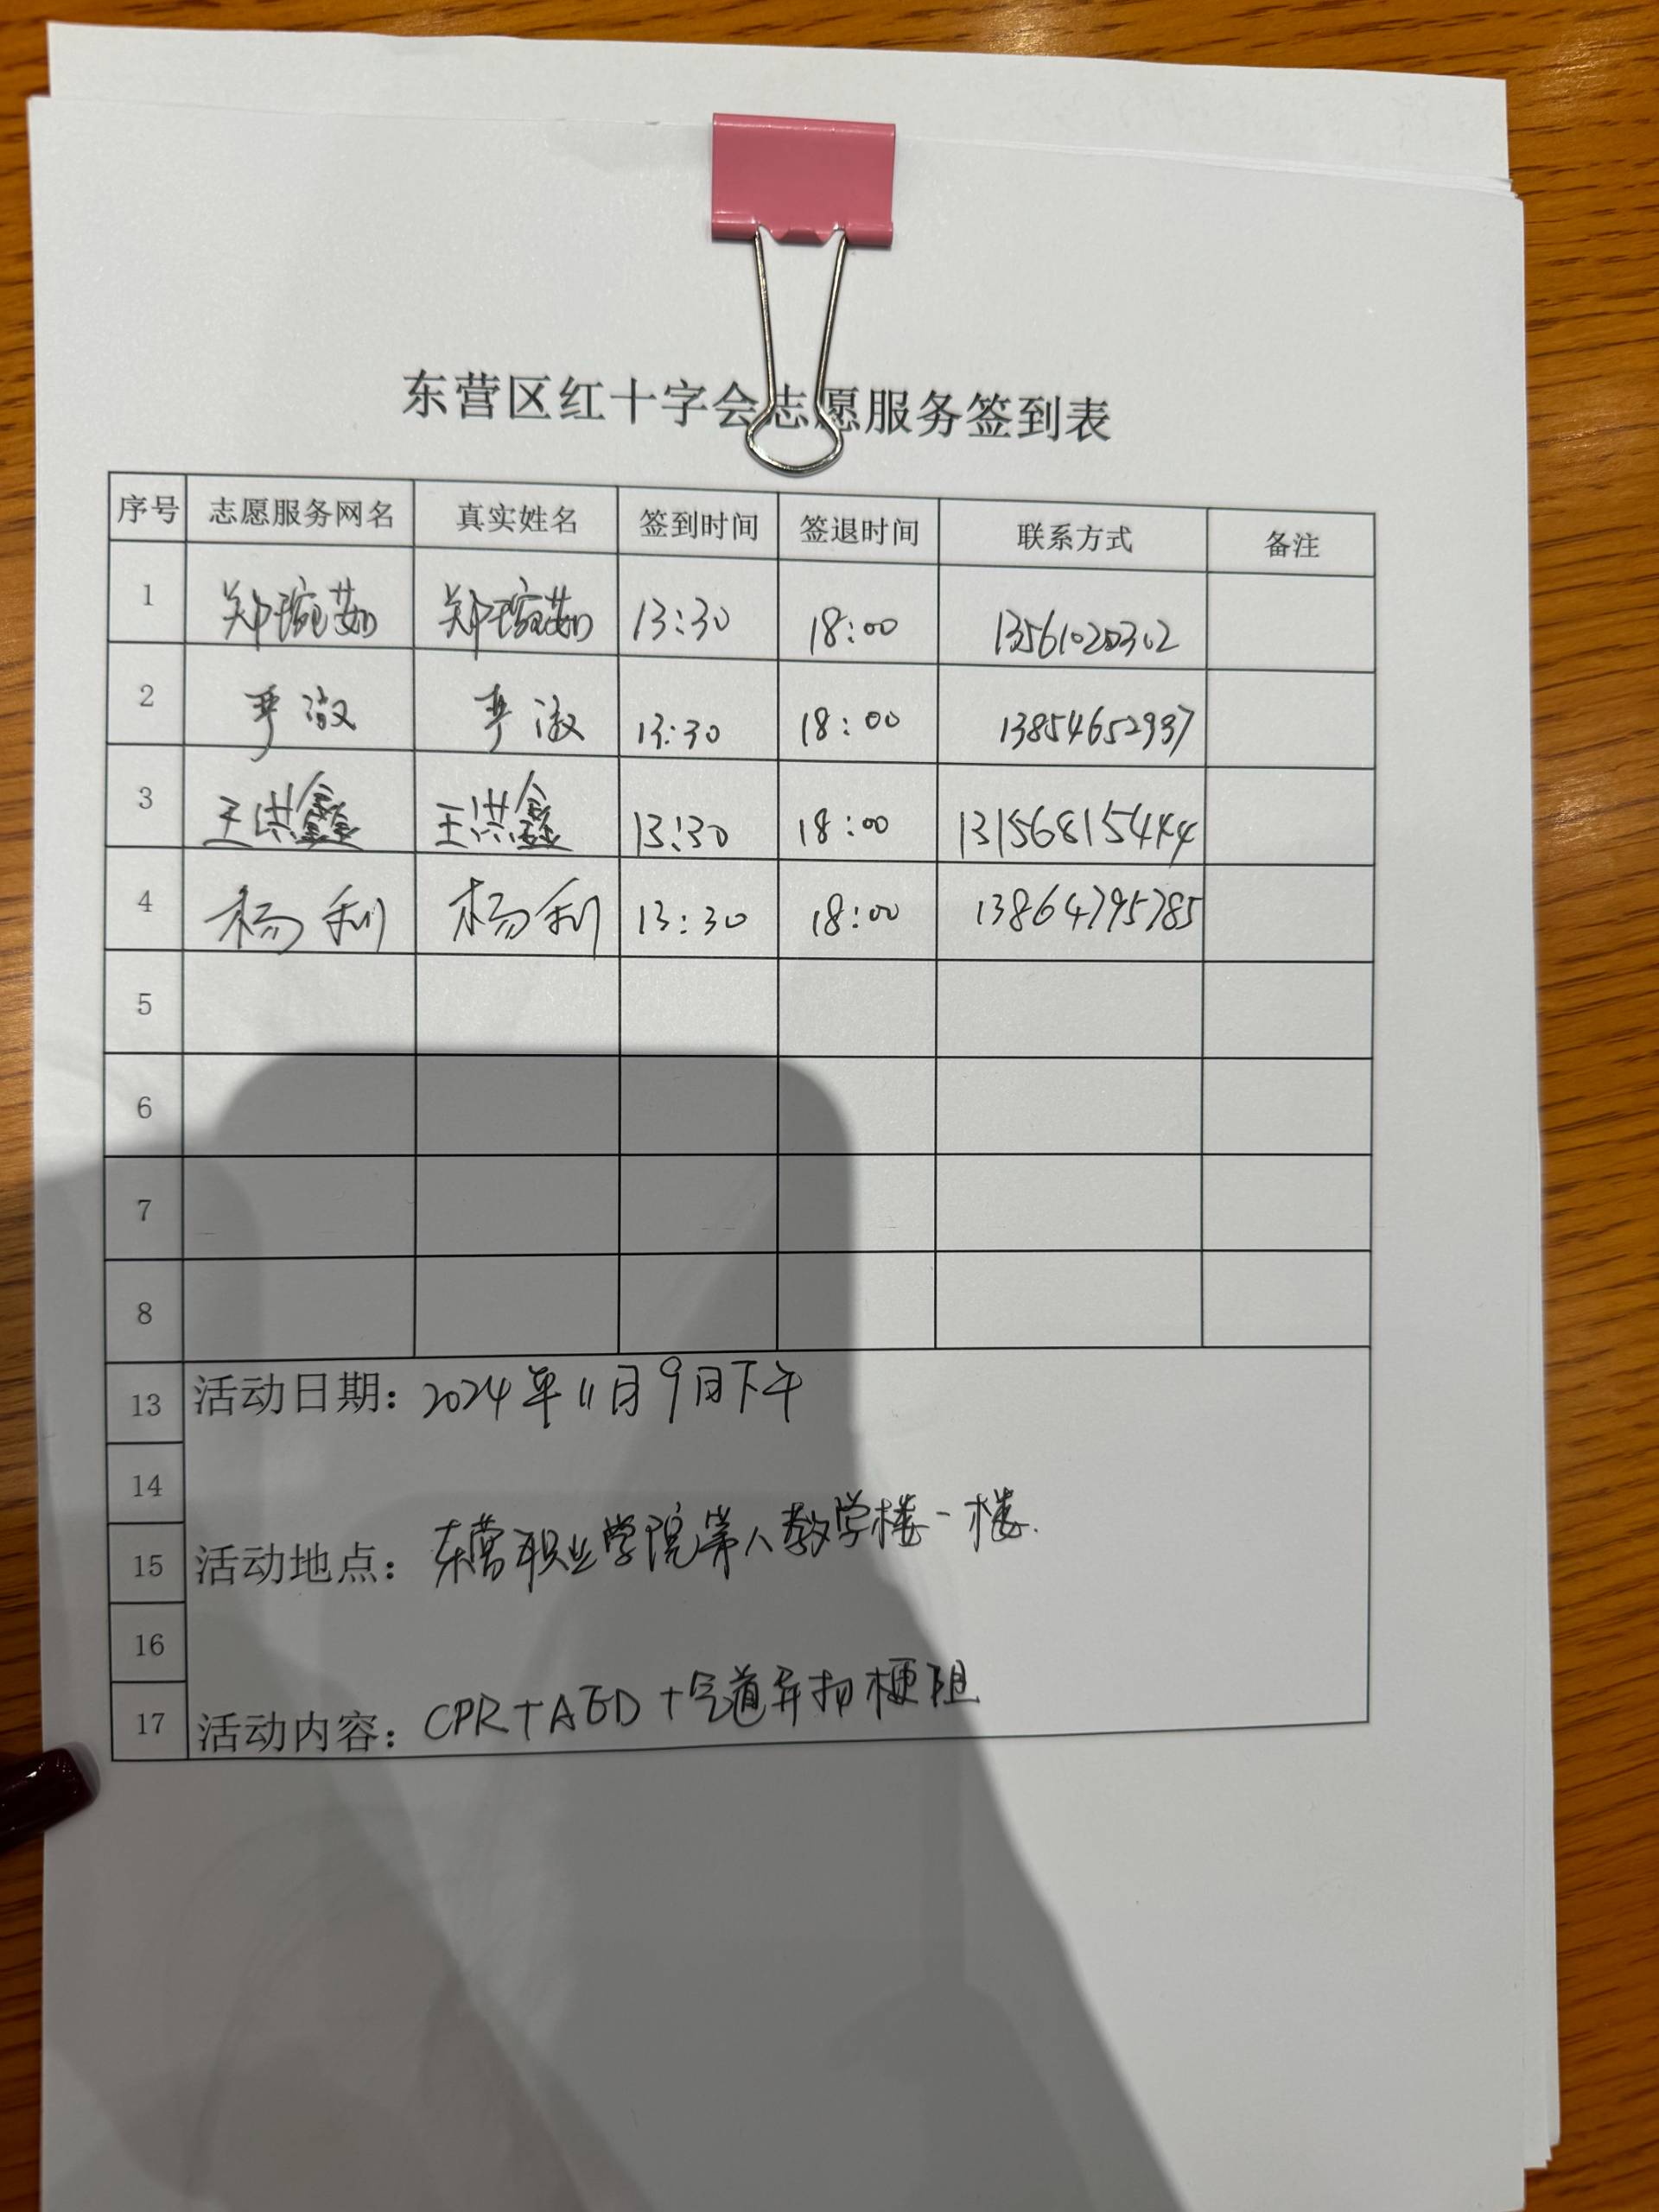 东营区红十字会志愿服务签到表
序号 志愿服务网名 真实姓名 签到时间 签退时间 联系方式 备注
1 郑琬茹 郑琬茹 13:30 18:00
2 13:30 18:00 13854652937
3 王洪鑫 王洪鑫 13:30 18:00 13156815444
4 杨利 杨利 13:30 18:00 13864795785
5
6
7
8
13 活动日期：2024年11月9日下午
14
15 活动地点：东营职业学院第八教学楼一楼.
16
17 活动内容：CPR+AED+气道异物梗阻